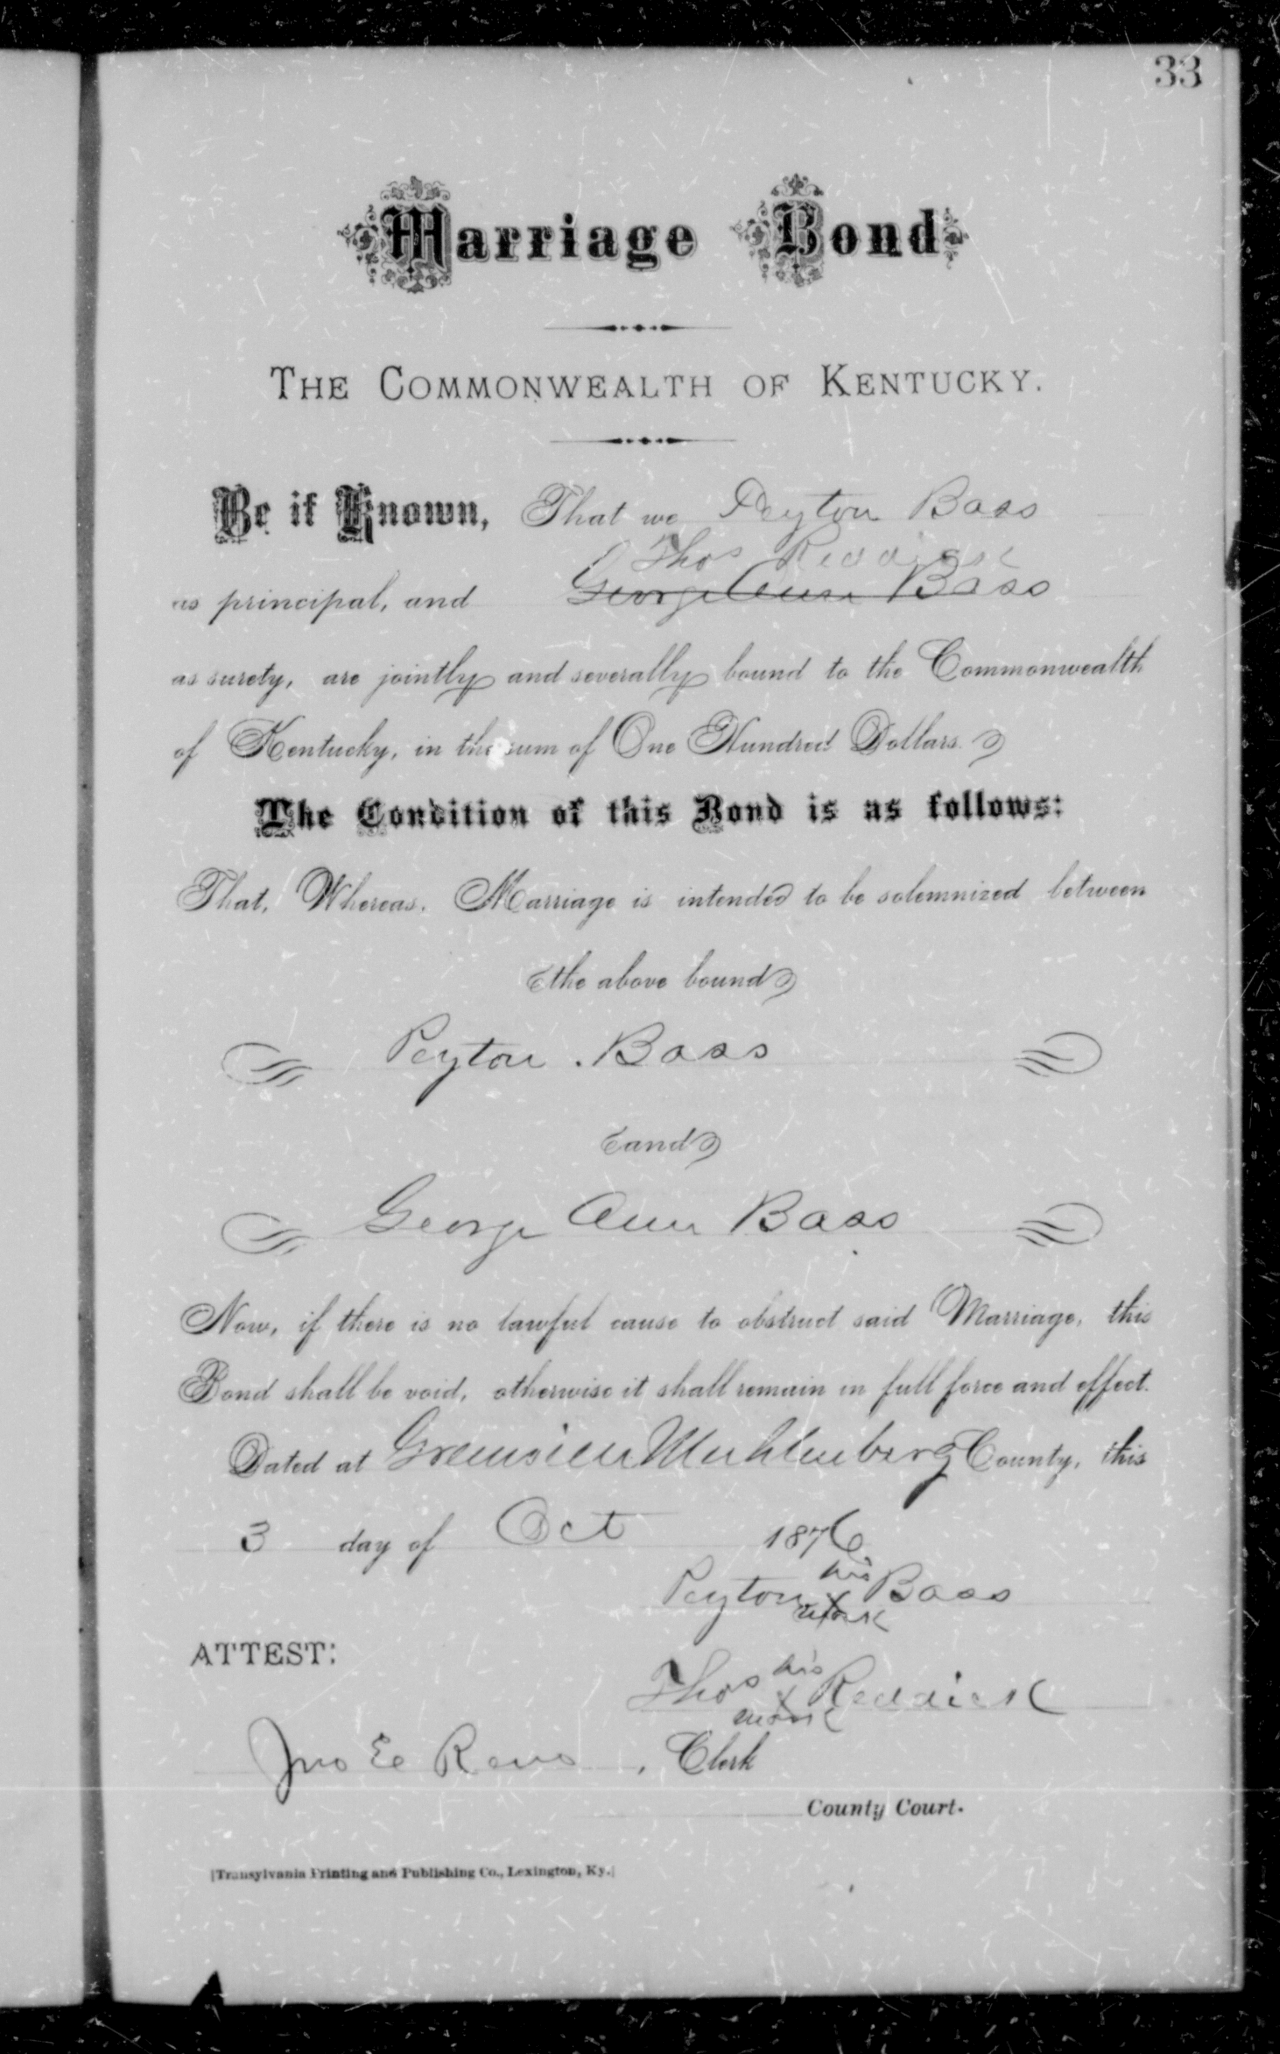 33
Marriage Bond
THE COMMONWEALTH OF KENTUCKY.
Be it Known, That we Peyton Bass
Thos Reddick
as principal, and George Ann Bass
as surety, are jointly and severally bound to the Commonwealth
of Kentucky, in the sum of One Hundred Dollars.
The Condition of this Bond is as follows:
That, Whereas, Marriage is intended to be solemnized between
the above bound
Peyton . Bass
and
George Ann Bass
Now, if there is no lawful cause to obstruct said Marriage, this
Bond shall be void, otherwise it shall remain in full force and effect.
Dated at Greenville Muhlenberg County, this
3 day of Oct 1876
his
Peyton X Bass
mark
ATTEST:
his
Thos X Reddick
mark
Jno E Reno, Clerk
County Court.
[Transylvania Printing and Publishing Co., Lexington, Ky.]